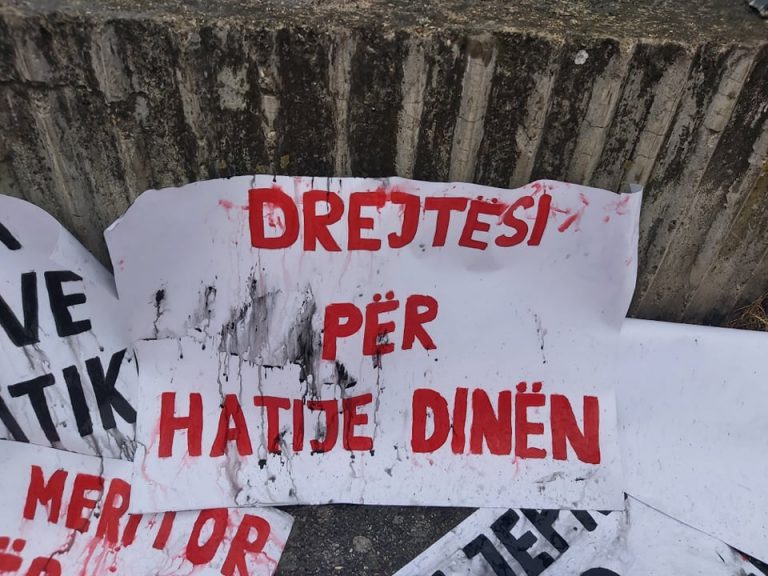 DREJTËSI
PËR
HATIJE DINËN
VE
TIK
MERITOR